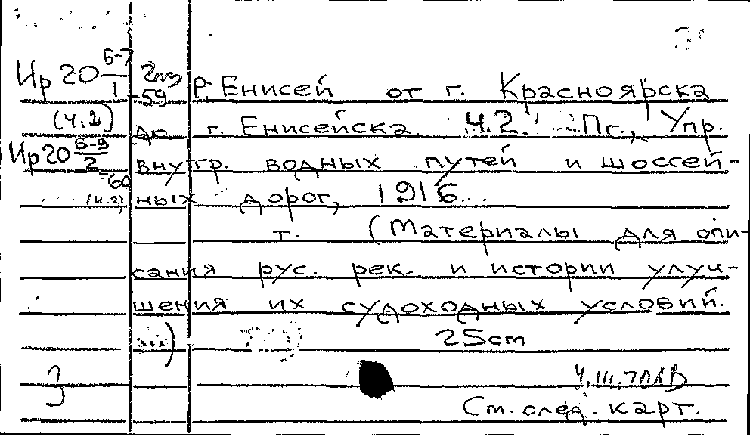 Ир 20 5-7/1 Р. Енисей от г. Красноярска
(ч.2) -59 до г. Енисейска. Ч.2. Пг., Упр.
Ир 20 внутр. водных путей и шоссей-
ных дорог, 1916.
т. (Материалы для опи-
сания рус. рек. и истории улуч-
шения их судоходных условий.
25cm
3
См. след. карт.